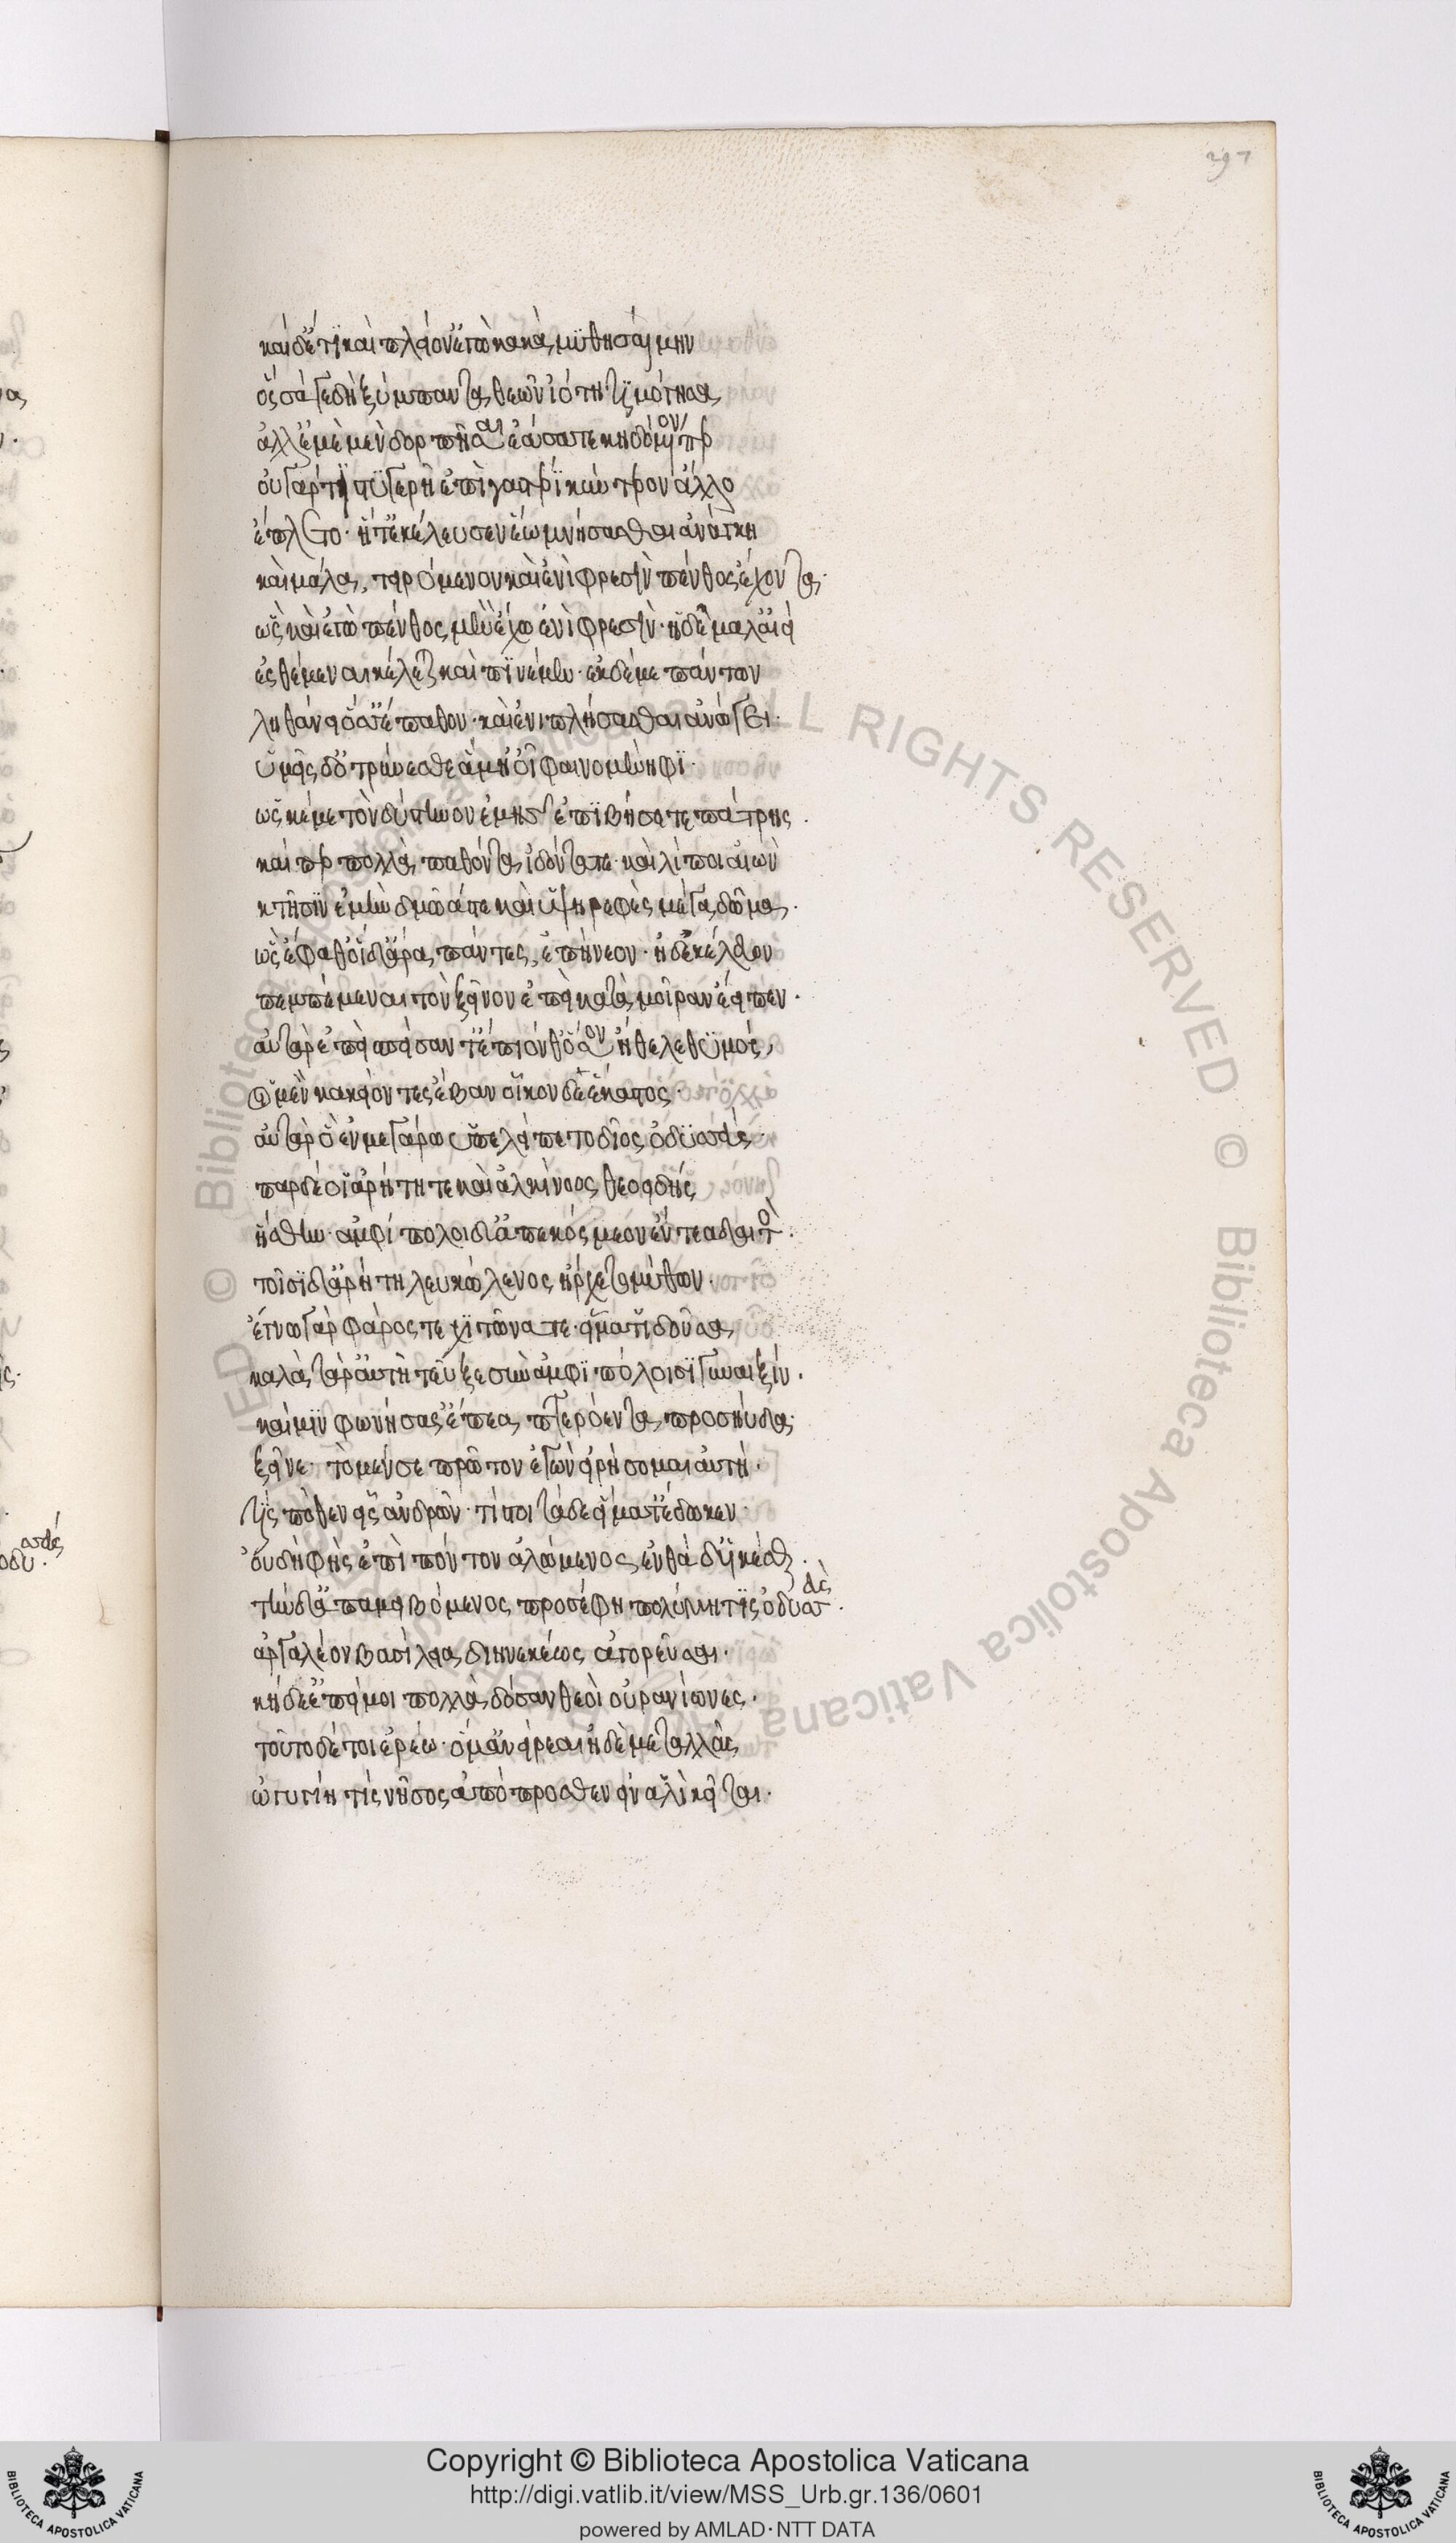 297
καὶ δέ τι καὶ πλεῖον ἐγὼ κακὰ μυθησαίμην
ὅσσά γε δὴ ξύμπαντα θεῶν ἰότητι μόγησα
ἀλλ' ἐμὲ μὲν δορπῆσαι ἐάσατε κηδόμενόν περ
οὐ γάρ τι στυγερῇ ἐπὶ γαστέρι κύντερον ἄλλο
ἔπλετο· ἥ τ' ἐκέλευσεν ἕω μνήσασθαι ἀνάγκη
καὶ μάλα τειρόμενον καὶ ἐνὶ φρεσὶν πένθος ἔχοντα·
ὣς καὶ ἐγὼ πένθος μὲν ἔχω ἐνὶ φρεσὶν· ἡ δὲ μάλ' αἰεὶ
ἐσθέμεναι κέλεται καὶ πινέμεν· ἐκ δέ με πάντων
ληθάνει ὅσσ' ἔπαθον· καὶ ἐνιπλήσασθαι ἀνώγει·
ὑμεῖς δ' ὀτρύνεσθε ἅμ' ἠοῖ φαινομένηφι·
ὥς κ' ἐμὲ τὸν δύστηνον ἐμῆς ἐπιβήσετε πάτρης.
καί περ πολλὰ παθόντα ἰδόντα με· καὶ λίποι αἰὼν
κτῆσιν ἐμὴν δμῶάς τε καὶ ὑψηρεφὲς μέγα δῶμα.
ὣς ἔφαθ' οἱ δ' ἄρα πάντες, ἐπῄνεον· ἠδ' ἐκέλευον
πεμπέμεναι τὸν ξεῖνον ἐπεὶ κατὰ μοῖραν ἔειπεν.
αὐτὰρ ἐπεὶ σπεῖσάν τ' ἔπιόν θ' ὅσον ἤθελε θυμός,
οἱ μὲν κακείοντες ἔβαν οἶκόνδε ἕκαστος·
αὐτὰρ ὃ ἐν μεγάρῳ ὑπελείπετο δῖος ὀδυσσεύς·
παρ δέ οἱ ἀρήτη τε καὶ ἀλκίνοος θεοειδής
ἥσθην· ἀμφίπολοι δ' ἀπεκόσμεον ἔντεα δαιτός.
τοῖσι δ' ἀρήτη λευκώλενος ἤρχετο μύθων.
ἔγνω γὰρ φᾶρός τε χιτῶνά τε· εἵματ' ἰδοῦσα
καλὰ τά ῥ' αὐτὴ τεῦξε σὺν ἀμφιπόλοισι γυναιξίν.
καί μιν φωνήσας ἔπεα πτερόεντα προσηύδα·
ξεῖνε· τὸ μέν σε πρῶτον ἐγὼν εἰρήσομαι αὐτή.
τίς πόθεν εἶς ἀνδρῶν· τίς τοι τάδε εἵματ' ἔδωκεν·
οὐ δὴ φῂς ἐπὶ πόντον ἀλώμενος ἐνθάδ' ἱκέσθαι.
τὴν δ' ἀπαμειβόμενος προσέφη πολύμητις ὀδυσσεύς.
ἀργαλέον βασίλεια διηνεκέως ἀγορεῦσαι.
κήδε' ἐπεί μοι πολλὰ δόσαν θεοὶ οὐρανίωνες.
τοῦτο δέ τοι ἐρέω· ὅ μ' ἀνείρεαι ἠδὲ μεταλλᾷς
ὠγυγίη τις νῆσος ἀπόπροσθεν εἰν ἁλὶ κεῖται.
Copyright © Biblioteca Apostolica Vaticana
http://digi.vatlib.it/view/MSS_Urb.gr.136/0601
powered by AMLAD·NTT DATA